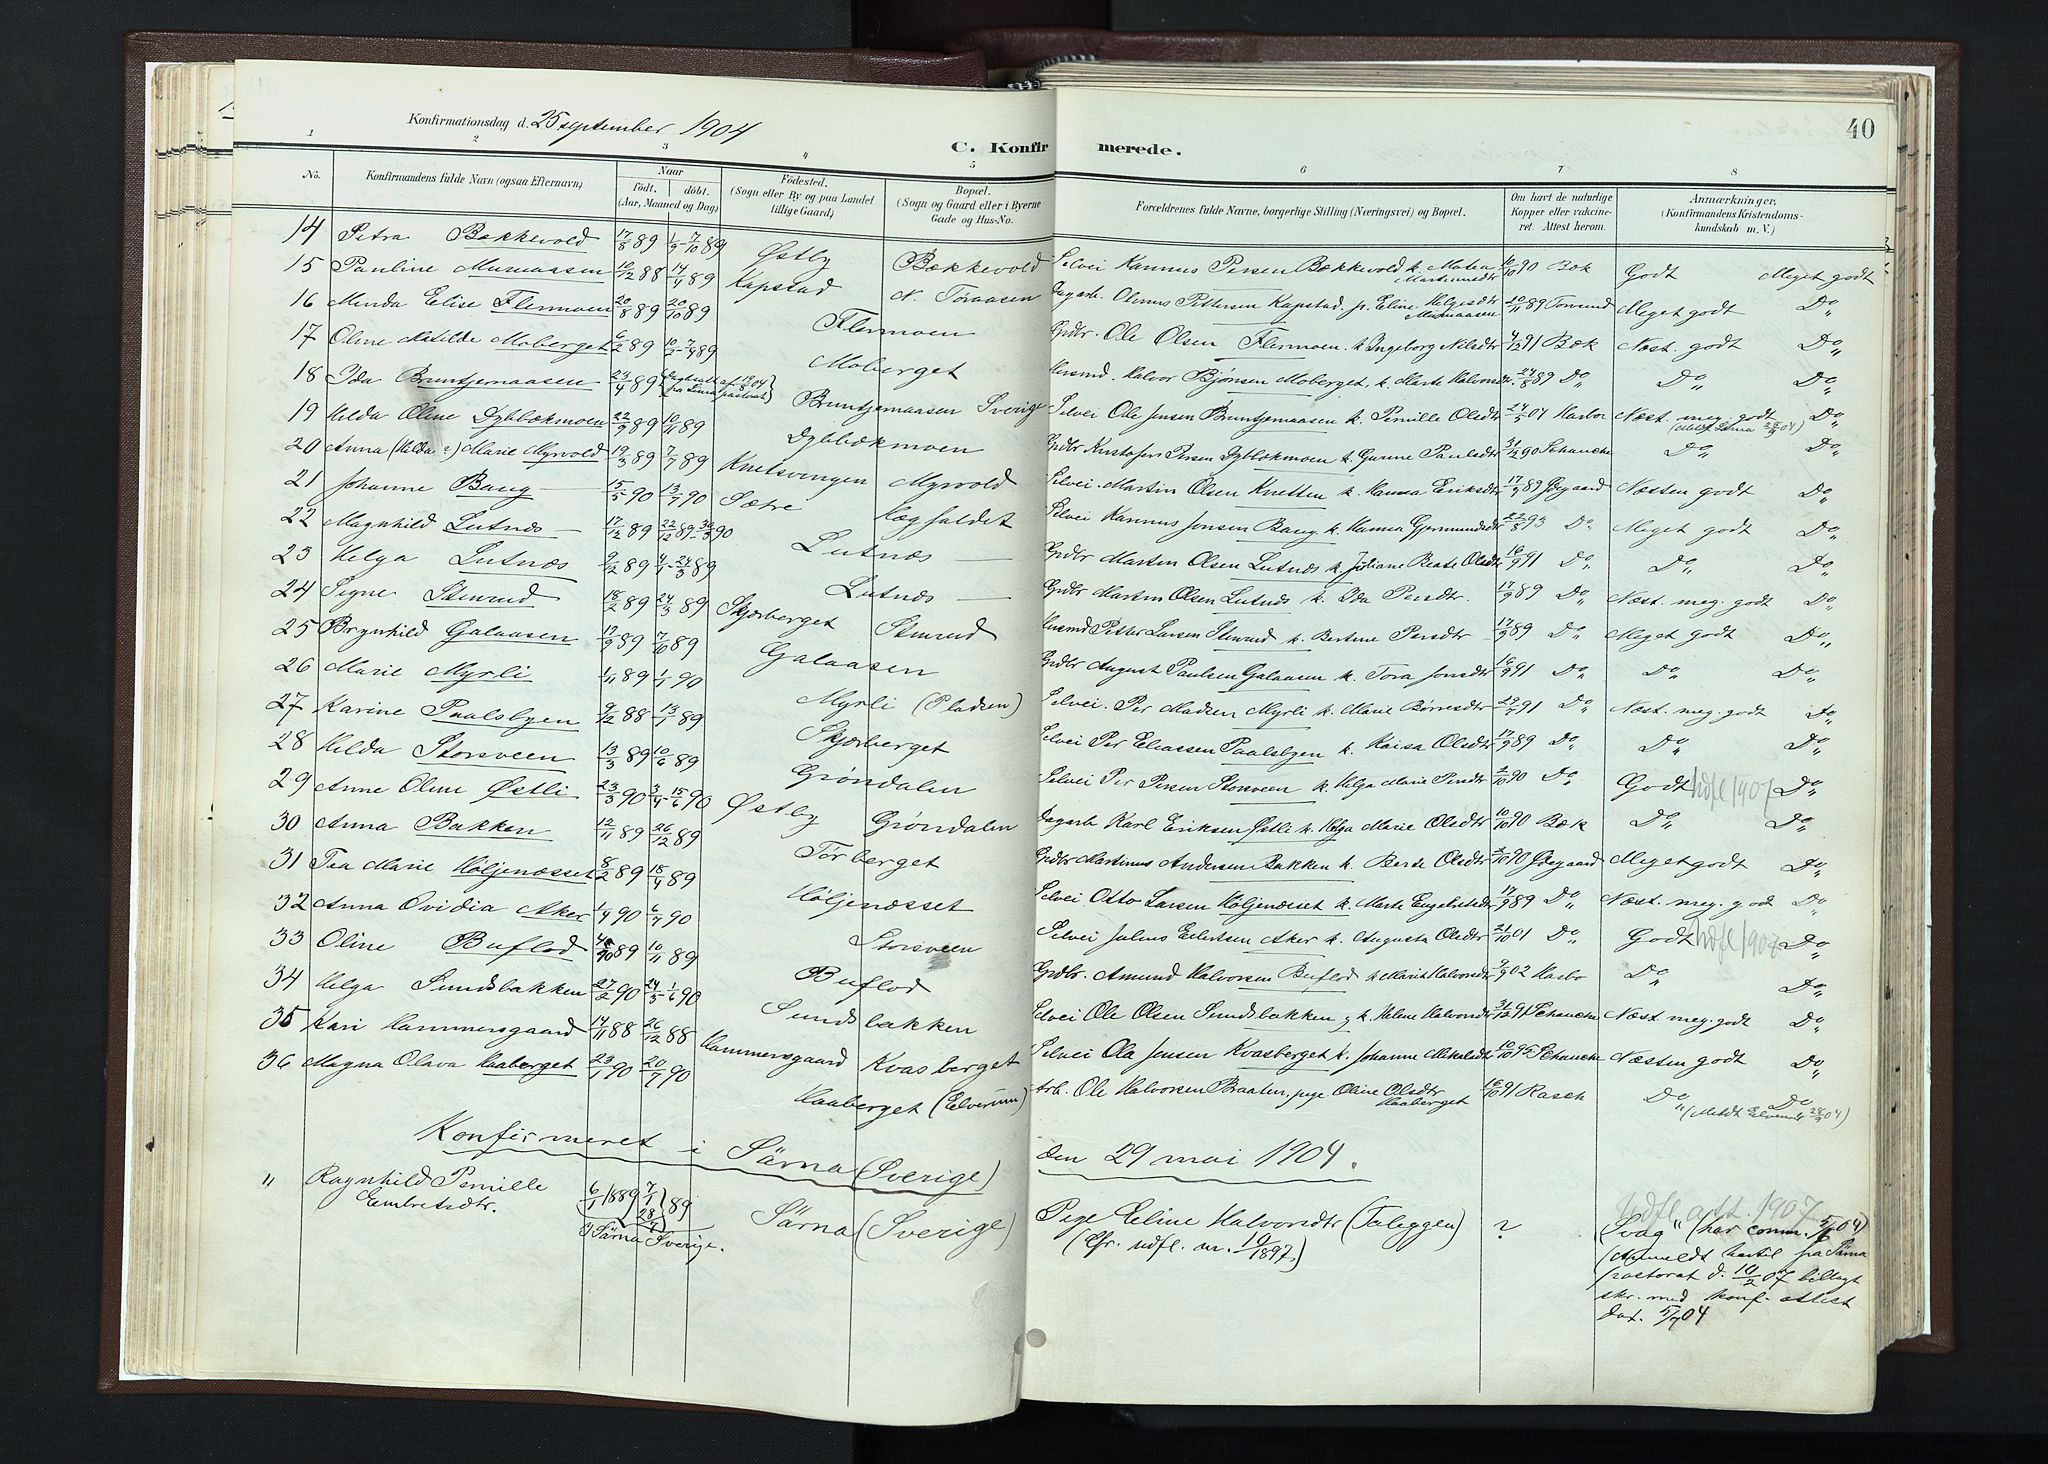 40
Konfirmationsdag d. 25 september 1904
C. Konfirmerede.
1 2 3 4 5 6 7 8
No. Konfirmandens fulde Navn (ogsaa Efternavn) Naar født. døbt. (Aar, Maaned og Dag) Fødested. (Sogn eller By og paa Landet tillige Gaard) Bopæl. (Sogn og Gaard eller i Byerne Gade og Hus-No. Forældrenes fulde Navne, borgerlige Stilling (Næringsvei) og Bopæl. Om havt de naturlige Kopper eller vakcineret. Attest herom. Anmærkninger. (Konfirmandens Kristendomskundskab m. V.)
14 Petra Bækkevold 17/8 89 1/9 - 7/10 89 Østby Bækkevold Selvei Hannus Persen Bækkevold h. Matea Martinusdtr 16/10 90 Bæk Godt Meget godt
15 Pauline Mumaasen 10/12 88 14/4 89 Kapstad N. Toraasen Dagarb. Olenus Pettersen Kapstad. p. Eline Helgesdtr Mumaasen 10/11 89 Meget godt Do
16 Menda Elise Flermoen 20/8 89 20/10 89 Flermoen Grdbr. Ole Olsen Flermoen h Ingeborg Nilsdtr 4/12 91 Bæk Næst. godt Do
17 Oline Matilde Moberget 6/2 89 10/2 - 7/4 89 Moberget Husmd. Halvor Bjønsen Moberget h. Marte Halvorsd. 24/8 89 Do Do Do
18 Ida Bruntjernaasen 23/4 89 Bruntjernaasen Sverige Selvei Ole Jensen Bruntjernaasen h. Pernille Olsdtr 24/5 04 Harbo Næst. meg. godt Do
19 Helda Oline Dybbækmoen 22/9 89 10/11 89 Dybbækmoen Grdbr Kristofer Persen Dybbækmoen h. Gunine Paulsdtr 31/12 90 Schancke Do Do
20 Anna (Helda?) Marie Myrvold 19/3 89 7/7 89 Knetsvingen Myrvold Selvei. Martin Olsen Knetten h. Hanna Eriksdtr 17/9 89 Ødegaard Næsten godt Do
21 Johanne Baug 15/5 90 13/7 90 Sætre Hægfaldet Selvei Hannus Jonsen Baug h. Hanna Gjermundsdtr 22/8 93 Do Meget godt Do
22 Magnhild Lutnæs 17/12 89 22/12 89 - 30/3 90 Lutnæs Grdbr Martin Olsen Lutnæs h. Juliane Beate Olsdtr 16/9 91 Do Do Do
23 Helga Lutnæs 9/12 89 4/1 - 24/3 89 Lutnæs Grdbr Martin Olsen Lutnæs h. Ida Persdtr. 17/9 89 Do Næst. meg. godt Do
24 Signe Stenrud 18/2 89 24/3 89 Skjærberget Stenrud Husmd Petter Larsen Stenrud h. Bertine Persdtr 17/9 89 Do Meget godt Do
25 Brynhild Galaasen 17/9 89 7/10 89 Galaasen Grdbr August Paulsen Galaasen h. Tora Jonsdtr 16/9 91 Do Do Do
26 Marie Myrli 1/11 89 1/1 90 Myrli (Pladsen) Selvei. Per Madsen Myrli h. Marie Børresdtr 29/7 91 Do Næst. meg. godt Do
27 Karine Paalsbyen 9/12 88 13/1 89 Skjærberget Selvei Per Eliassen Paalsbyen h. Kaisa Olsdtr 17/9 89 Do Do Do
28 Helda Storsveen 13/3 89 10/6 89 Grøndalen Selvei Per Persen Storsveen h. Helga Marie Persdtr 2/10 90 Do Godt Udfl 1907 Do
29 Anne Oline Østli 23/3 90 3/4 - 15/6 90 Østby Grøndalen Dagarb Karl Eriksen Østli h. Helga Marie Olsdtr 10/10 90 Bæk Do Do
30 Anna Bakken 12/11 89 26/12 89 Tørberget Grdbr Martinus Andersen Bakken h. Berte Olsdtr 2/10 90 Ødegaard Meget godt Do
31 Tea Marie Høljenæsset 8/2 89 18/4 89 Høljenæsset Selvei Otto Larsen Høljenæsset h. Marte Engebretsdtr 17/9 89 Do Næst. meg. godt Do
32 Anna Ovidia Aker 1/4 90 6/7 90 Storsveen Selvei Julius Eilertsen Aker h. Augusta Olsdtr 21/10 01 Do Godt Udfl 1907 Do
33 Oline Buflod 89 10/11 89 Buflod Grdbr. Amund Halvorsen Buflod h Marit Halvorsdtr 9/9 02 Harbo Do Do
34 Helga Sundsbakken 27/2 90 24/5 - 1/6 90 Sundsbakken Selvei Ole Olsen Sundsbakken g h. Helene Halvorsdtr 31/12 91 Schancke Næst. meg. godt Do
35 Kari Hammersgaard 14/11 88 26/12 88 Hammersgaard Kvasberget Selvei Ola Jensen Kvasberget h. Johanne Mikelsdtr 10/10 Schancke Næsten godt Do
36 Magna Olava Haaberget 23/1 90 20/7 90 Haaberget (Elverum) Arb. Ole Halvorsen Braaten, pige Oline Olsdtr Haaberget 16/10 91 Rasch Do Do
Konfirmeret i Särna (Sverige) den 29 mai 1904.
" Ragnhild Pernille Embretsdtr. 6/1 1889 7/1 28/7 89 i Särna Sverige. Särna (Sverige) Pige Eline Halvorsdtr (Taleggen) (Cfr. udfl. nr. 19/1897.) ? Udfl. att. 1907
Svag " (har comm. 5/6 04)
(Anmeldt hertil fra Särna
pastorat d. 10/2 07 bilagt
skr. med konf. attest
dat. 5/7 04